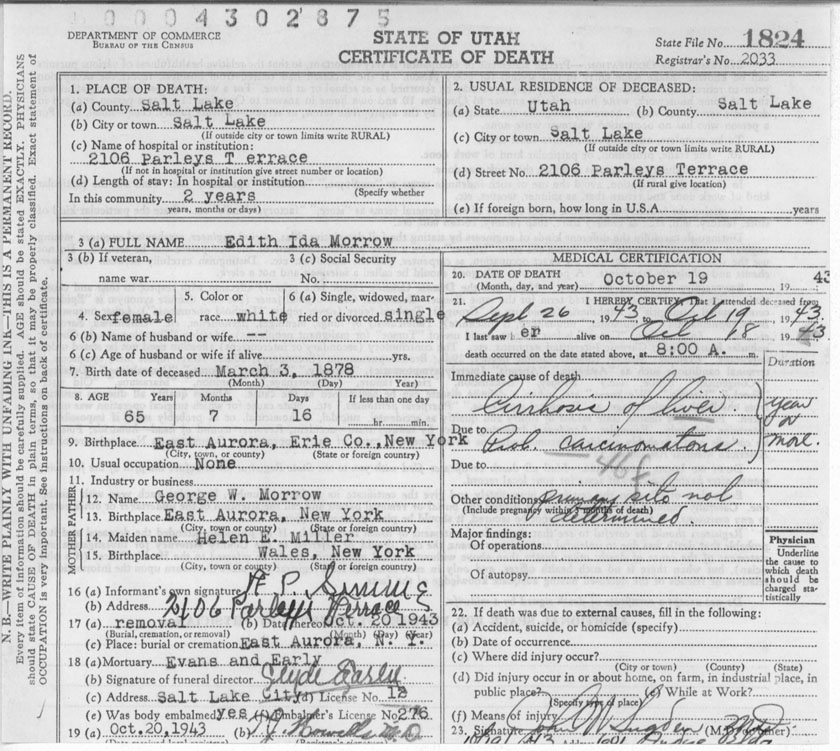 00004302875
DEPARTMENT OF COMMERCE
BUREAU OF THE CENSUS
STATE OF UTAH
CERTIFICATE OF DEATH
State File No. 1824
Registrar's No. 2033
N. B.—WRITE PLAINLY WITH UNFADING INK—THIS IS A PERMANENT RECORD.
Every item of information should be carefully supplied. AGE should be stated EXACTLY. PHYSICIANS
should state CAUSE OF DEATH in plain terms, so that it may be properly classified. Exact statement of
OCCUPATION is very important. See instructions on back of certificate.
1. PLACE OF DEATH:
(a) County Salt Lake
(b) City or town Salt Lake
(If outside city or town limits write RURAL)
(c) Name of hospital or institution:
2106 Parleys T errace
(If not in hospital or institution give street number or location)
(d) Length of stay: In hospital or institution
(Specify whether
In this community 2 years
years, months or days)
2. USUAL RESIDENCE OF DECEASED:
(a) State Utah (b) County Salt Lake
(c) City or town Salt Lake
(If outside city or town limits write RURAL)
(d) Street No. 2106 Parleys Terrace
(If rural give location)
(e) If foreign born, how long in U.S.A. years
3 (a) FULL NAME Edith Ida Morrow
3 (b) If veteran,
name war
3 (c) Social Security
No.
4. Sex female
5. Color or
race white
6 (a) Single, widowed, mar-
ried or divorced single
6 (b) Name of husband or wife --
6 (c) Age of husband or wife if alive yrs.
7. Birth date of deceased March 3, 1878
(Month) (Day) Year)
8. AGE Years Months Days If less than one day
65 7 16 hr. min.
9. Birthplace East Aurora, Erie Co., New York
(City, town, or county) (State or foreign country)
10. Usual occupation None
11. Industry or business
FATHER
12. Name George W. Morrow
13. Birthplace East Aurora, New York
(City, town or county) (State or foreign country)
MOTHER
14. Maiden name Helen E. Miller
15. Birthplace Wales, New York
(City, town or county) (State or foreign country)
16 (a) Informant's own signature H P Simms
(b) Address 2106 Parleys Terrace
17 (a) removal (b) Date thereof Oct. 20 1943
(Burial, cremation, or removal) (Month) (Day) (Year)
(c) Place: burial or cremation East Aurora, N. Y.
18 (a) Mortuary Evans and Early
(b) Signature of funeral director Clyde Early
(c) Address Salt Lake City (d) License No. 18
(e) Was body embalmed yes (f) Embalmer's License No. 276
19 (a) Oct. 20, 1943 (b)
MEDICAL CERTIFICATION
20. DATE OF DEATH
(Month, day, and year) October 19 19 43
21. I HEREBY CERTIFY, That I attended deceased from
Sept 26, 1943, to Oct 19, 1943.
I last saw h er alive on Oct 18, 1943
death occurred on the date stated above, at 8:00 A. m.
Duration
Immediate cause of death
Cirrhosis of liver.
year or more.
Due to Prob. carcinomatous.
Due to 46f
Other conditions primary site not
(Include pregnancy within 3 months of death)
determined.
Major findings:
Of operations
Of autopsy
Physician
Underline
the cause to
which death
should be
charged sta-
tistically
22. If death was due to external causes, fill in the following:
(a) Accident, suicide, or homicide (specify)
(b) Date of occurrence
(c) Where did injury occur?
(City or town) (County) (State)
(d) Did injury occur in or about home, on farm, in industrial place, in
public place? (e) While at Work?
(Specify type of place)
(f) Means of injury
23. Signature